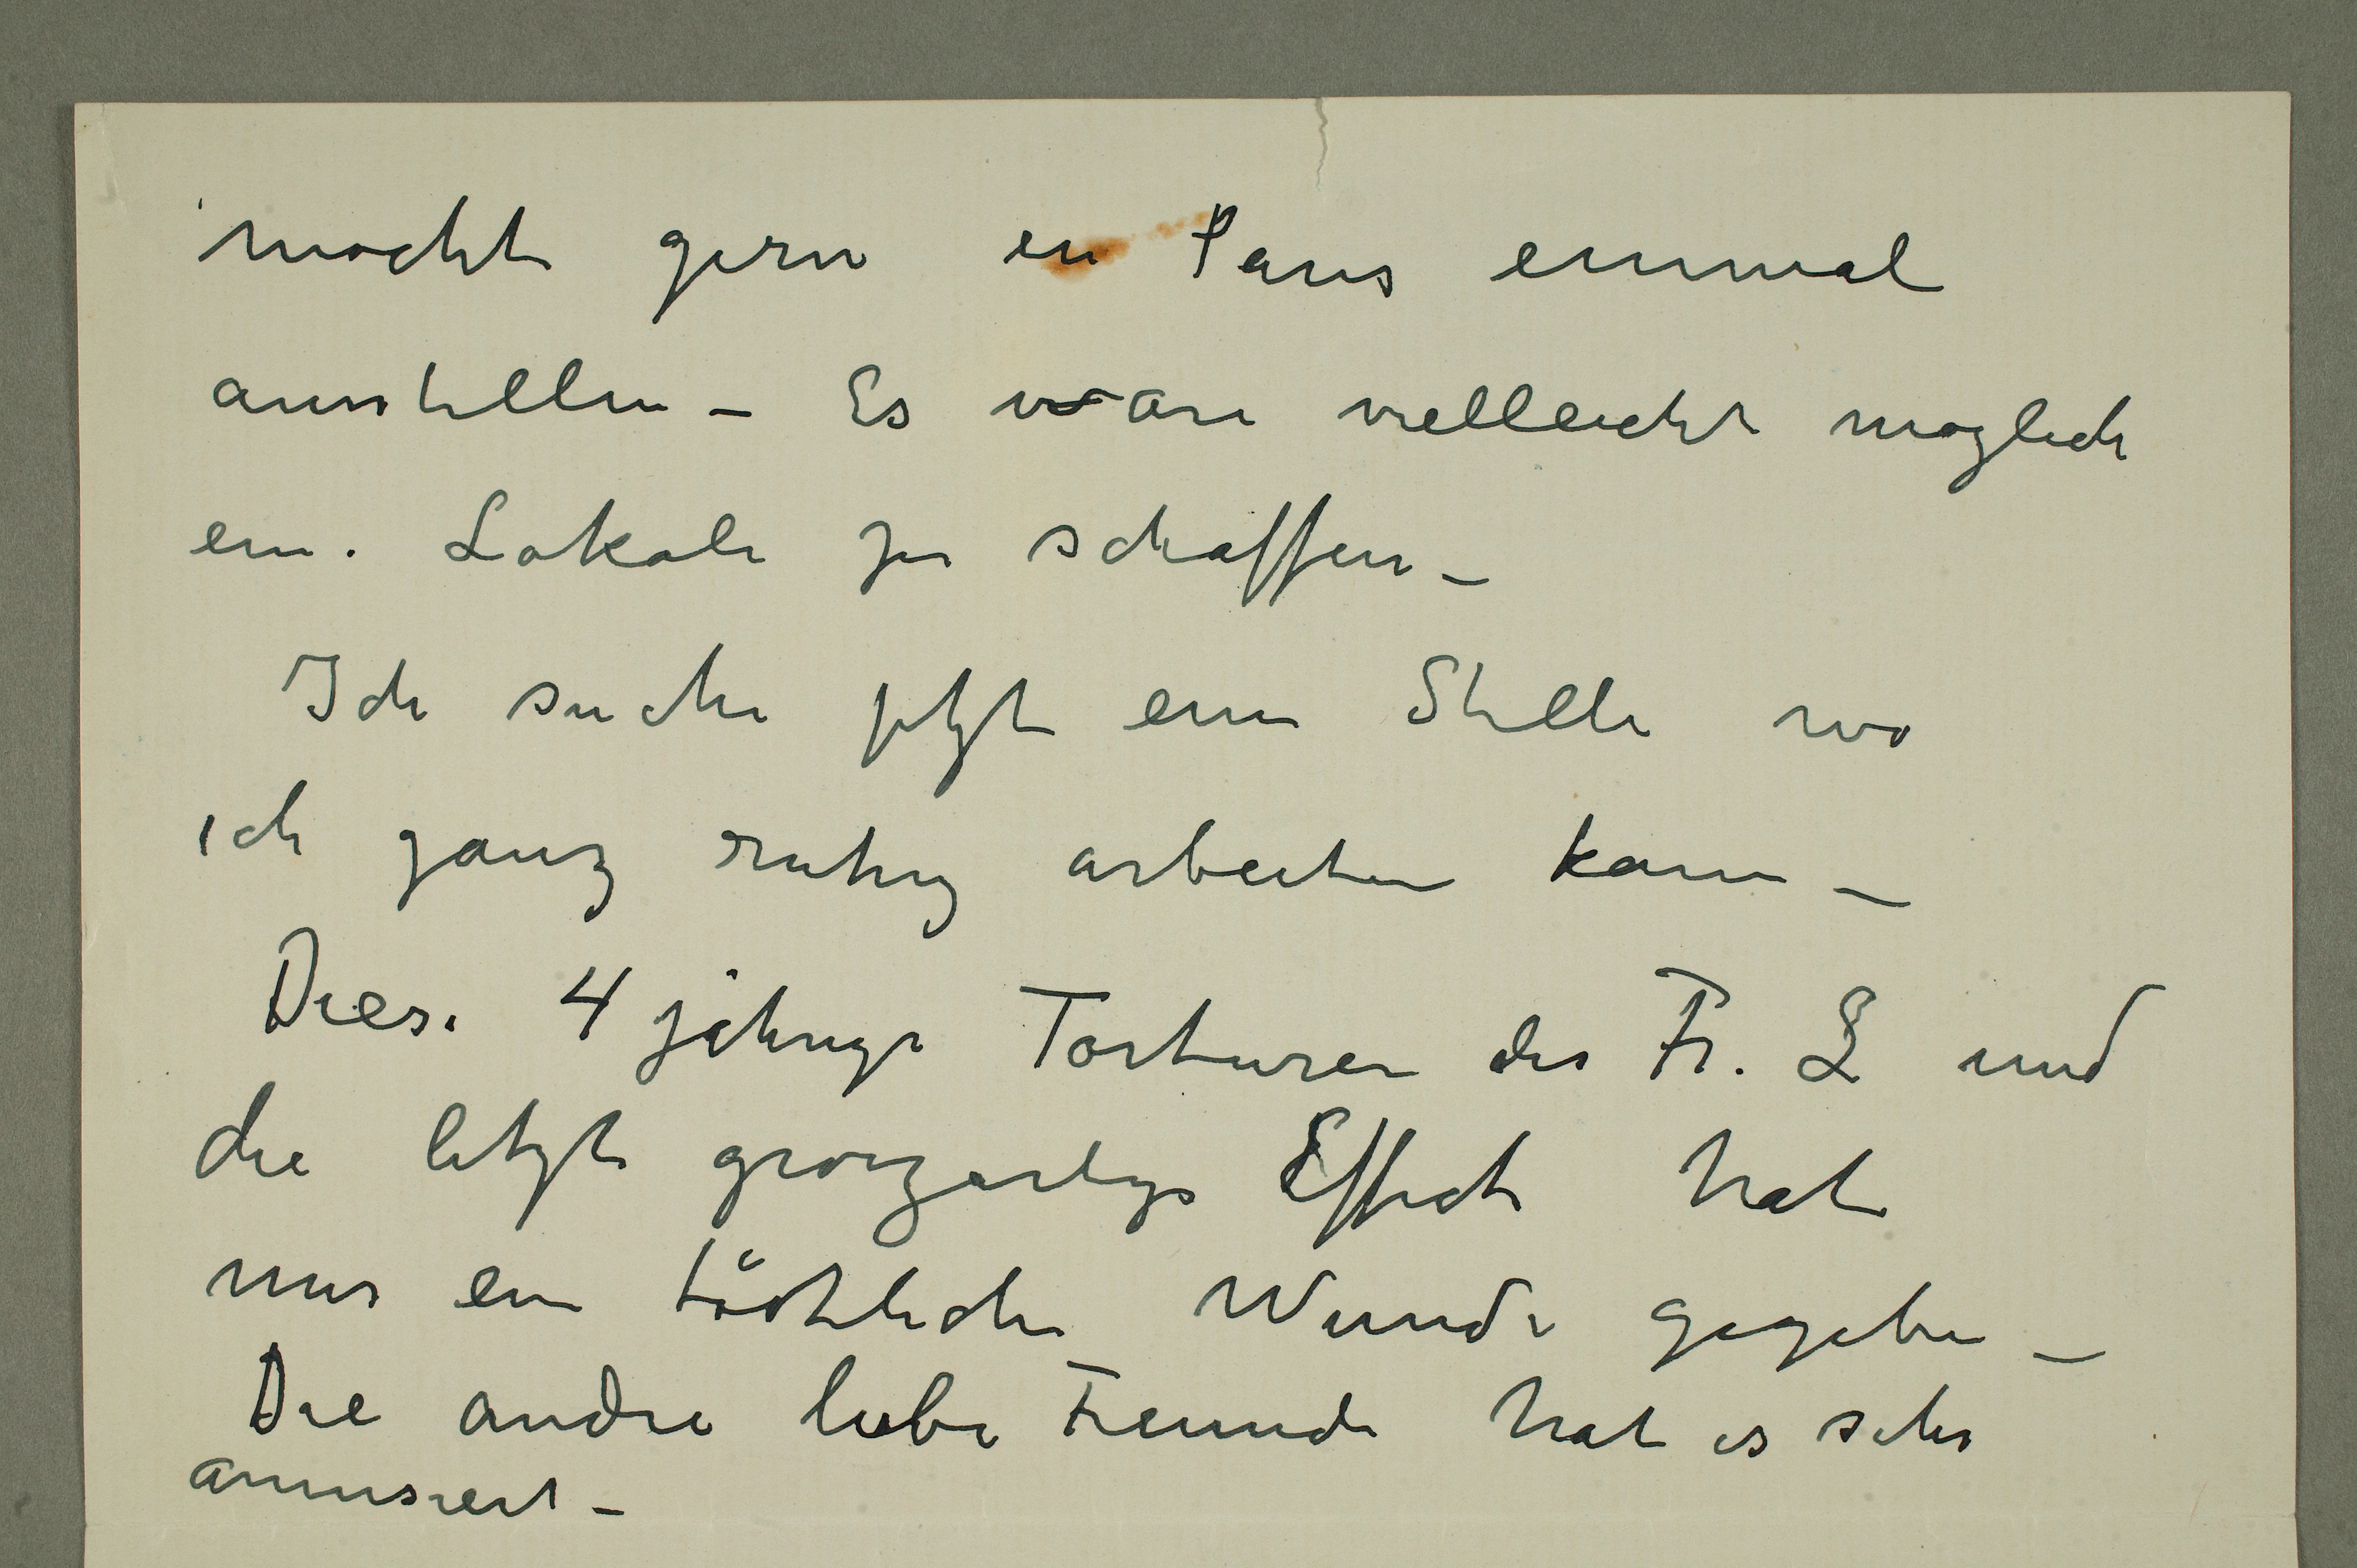 mochte gern in Paris einmal
ausstellen – Es ware vielleicht moglich
ein. Lokale zu schaffen –
Ich suche jetzt eine Stelle wo
ich ganz ruhig arbeiten kann –
Diese 4 jährige Torturen der Fr. L und
die letzte groszartige Effect hat
mir eine tödtliche Wunde gegeben –
Die andre liebe Freunde hat es sehr
amusiert –